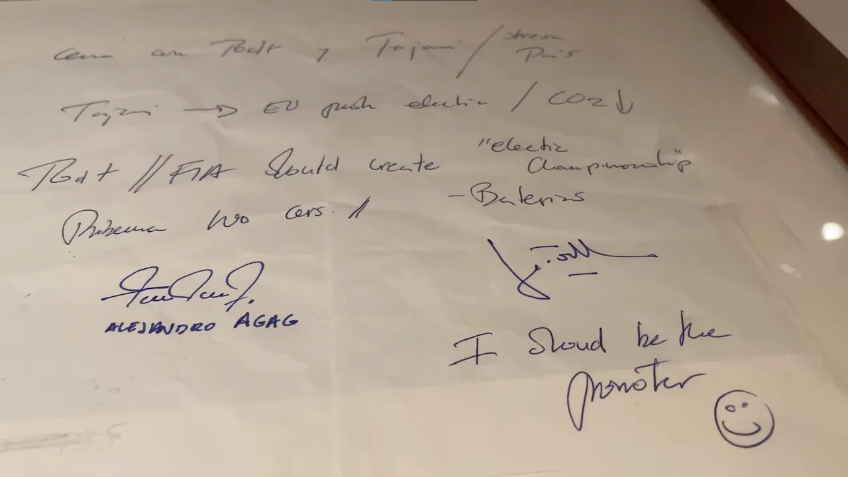 Cena con Todt y Tajani / stressa París
Tajani → EU push electric / CO2 ↓
Todt // FIA Should create "electric Championship"
Problema No cars. // - Baterias
ALEJANDRO AGAG
I Shoud be the
promoter